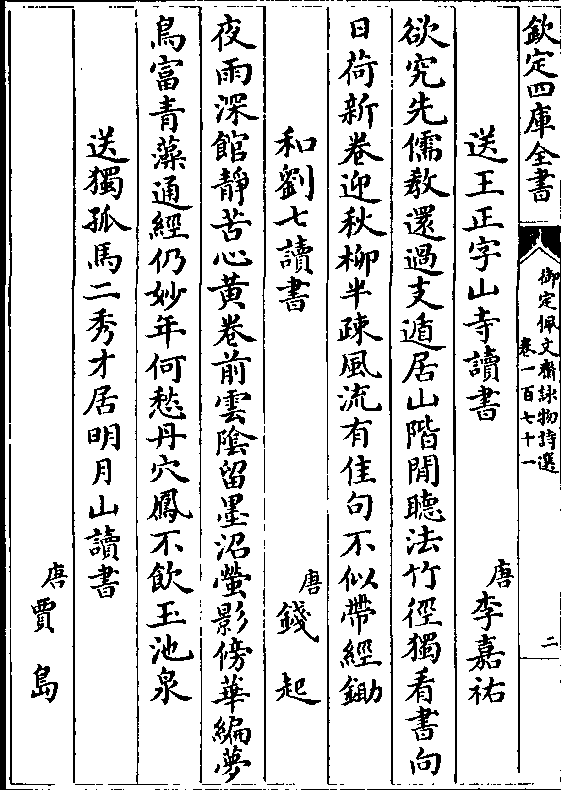 欽定四庫全書
御定佩文齋詠物詩選
卷一百七十一
二
送王正字山寺讀書
唐李嘉祐
欲究先儒教還過支遁居山階閒聽法竹徑獨看書向
日荷新卷迎秋柳半疎風流有佳句不似帶經鋤
和劉七讀書
唐錢起
夜雨深館靜苦心黃卷前雲陰留墨沼螢影傍華編夢
鳥富青藻通經仍妙年何愁丹穴鳳不飲玉池泉
送獨孤馬二秀才居明月山讀書
唐賈島